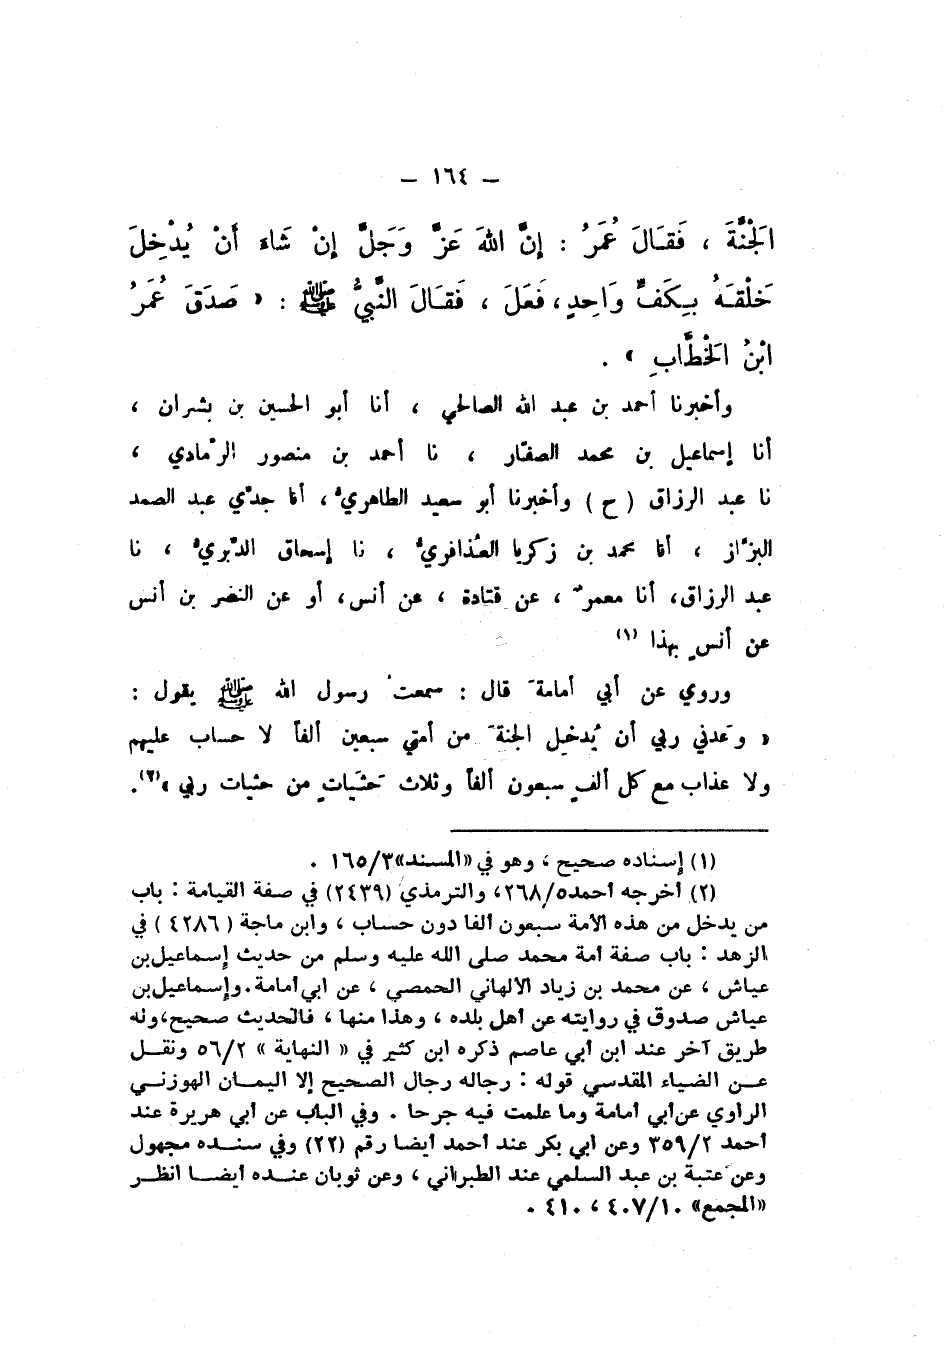 – ١٦٤ –
الجَنَّةَ ، فَقَالَ عُمَرُ : إِنَّ اللهَ عَزَّ وَجَلَّ إِنْ شَاءَ أَنْ يُدْخِلَ
خَلْقَهُ بِكَفٍّ وَاحِدٍ ، فَعَلَ ، فَقَالَ النَّبِيُّ ﷺ : « صَدَقَ عُمَرُ
ابْنُ الخَطَّابِ » .
وأخبرنا أحمد بن عبد الله الصالحي ، أنا أبو الحسين بن بشران ،
أنا إسماعيل بن محمد الصفّار ، نا أحمد بن منصور الرّمادي ،
نا عبد الرزاق ( ح ) وأخبرنا أبو سعيد الطاهريُّ ، أنا جدّي عبد الصمد
البزّاز ، أنا محمد بن زكريا العُذافريُّ ، نا إسحاق الدَّبريُّ ، نا
عبد الرزاق، أنا معمرٌ ، عن قتادة ، عن أنس، أو عن النضر بن أنس
عن أنسٍ بهذا (١)
وروي عن أبي أمامةَ قال : سمعتُ رسول الله ﷺ يقول :
« وَعدني ربي أن يُدخِل الجنةَ من أمتي سبعين ألفاً لا حساب عليهم
ولا عذاب مع كل ألفٍ سبعون ألفاً وثلاث حَثَيَاتٍ من حثيات ربي »(٢).
(١) إسناده صحيح ، وهو في «المسند»١٦٥/٣ .
(٢) أخرجه أحمد٢٦٨/٥، والترمذي (٢٤٣٩) في صفة القيامة : باب
من يدخل من هذه الأمة سبعون ألفا دون حساب ، وابن ماجة ( ٤٢٨٦ ) في
الزهد : باب صفة أمة محمد صلى الله عليه وسلم من حديث إسماعيل بن
عياش ، عن محمد بن زياد الألهاني الحمصي ، عن ابي أمامة.وإسماعيل بن
عياش صدوق في روايته عن أهل بلده ، وهذا منها ، فالحديث صحيح،وله
طريق آخر عند ابن أبي عاصم ذكره ابن كثير في « النهاية » ٥٦/٢ ونقل
عن الضياء المقدسي قوله : رجاله رجال الصحيح إلا اليمان الهوزني
الراوي عن أبي أمامة وما علمت فيه جرحا . وفي الباب عن أبي هريرة عند
أحمد ٣٥٩/٢ وعن ابي بكر عند أحمد أيضا رقم (٢٢) وفي سنده مجهول
وعن عتبة بن عبد السلمي عند الطبراني ، وعن ثوبان عنده أيضا انظر
«المجمع» ٤٠٧/١٠ ، ٤١٠ .